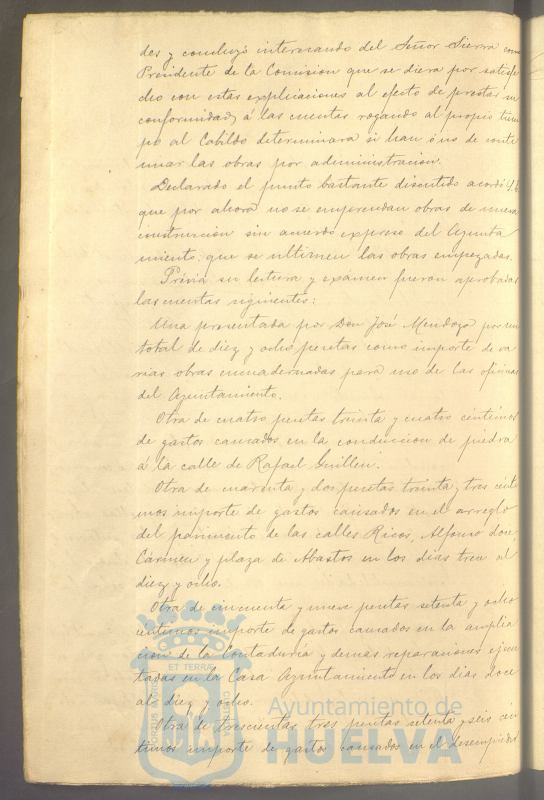 des y concluyó interesando del Señor Sierra como
Presidente de la Comision que se diera por satisfe
cho con estas explicaciones al efecto de prestar su
conformidad á las cuentas rogando al propio tiem
po al Cabildo determinara si han ó no de conti
nuar las obras por administracion.
Declarado el punto bastante discutido acordó S.E.
que por ahora no se emprendan obras de nueva
construccion sin acuerdo expreso del Ayunta
miento: que se ultimen las obras empezadas.
Prévia su lectura y exámen fueron aprobadas
las cuentas siguientes:
Una presentada por Don José Mendoza por un
total de diez y ocho pesetas como importe de va
rias obras encuadernadas para uso de las oficinas
del Ayuntamiento.
Otra de cuatro pesetas treinta y cuatro céntimos
de gastos causados en la conduccion de piedra
á la calle de Rafael Guillen.
Otra de cuarenta y dos pesetas treinta y tres cénti
mos importe de gastos causados en el arreglo
del pavimento de las calles Ricos, Alfonso doce,
Cármen y plaza de Abastos en los dias trece al
diez y ocho.
Otra de cincuenta y nueve pesetas setenta y ocho
céntimos importe de gastos causados en la amplia
cion de la Contaduría y demás reparaciones ejecu
tadas en la Casa Ayuntamiento en los dias doce
al diez y ocho.
Otra de trescientas tres pesetas setenta y seis cén
timos importe de gastos causados en el desempiedro
ET TERRÆ
Ayuntamiento de
HUELVA